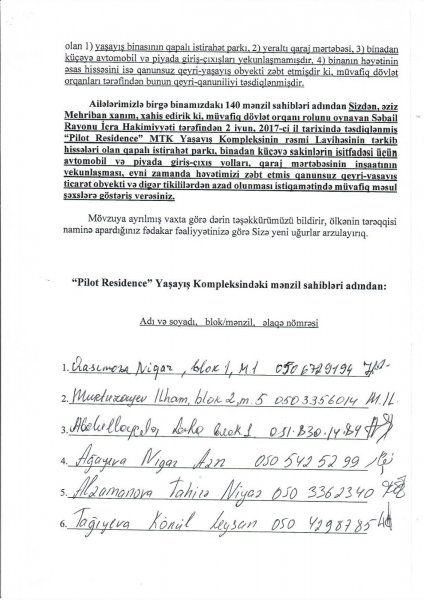 olan 1) yaşayış binasının qapalı istirahət parkı, 2) yeraltı qaraj mərtəbəsi, 3) binadan
küçəyə avtomobil və piyada giriş-çıxışları yekunlaşmamışdır, 4) binanın həyətinin
əsas hissəsini isə qanunsuz qeyri-yaşayış obyekti zəbt etmişdir ki, müvafiq dövlət
orqanları tərəfindən bunun qeyri-qanuniliyi təsdiqlənmişdir.
Ailələrimizlə birgə binamızdakı 140 mənzil sahibləri adından Sizdən, əziz
Mehriban xanım, xahis edirik ki, müvafiq dövlət orqanı rolunu oynayan Səbail
Rayonu İcra Hakimiyyəti tərəfindən 2 iyun, 2017-ci il tarixində təsdiqlənmis
"Pilot Residence" MTK Yaşayış Kompleksinin rəsmi Layihəsinin tərkib
hissələri olan qapalı istirahət parkı, binadan küçəyə sakinlərin isitfadəsi üçün
avtomobil və piyada giris-çıxıs yolları, qaraj mərtəbəsinin insaatının
yekunlaşması, eyni zamanda həyətimizi zəbt etmis qanunsuz qeyri-yasayıs
ticarət obyekti və digər tikililərdən azad olunması istiqamətində müvafiq məsul
şəxslərə göstəriş verəsiniz.
Mövzuya ayrılmış vaxta görə dərin təşəkkürümüzü bildirir, ölkənin tərəqqisi
naminə apardığınız fədakar fəaliyyətinizə görə Sizə yeni uğurlar arzulayırıq.
"Pilot Residence" Yaşayış Kompleksindəki mənzil sahibləri adından:
Adı və soyadı, blok/mənzil, əlaqə nömrəsi
1. Qasımova Nigar, blok 1, m1 050 6729194
2. Murtuzayev Ilham, blok 2, m. 5 0503356014 M.İl.
3. blok 1 051-830-14-84
4. Ağayeva Nigar 050 542 52 99
5. Tahirə Niyaz 050 3362340
6. Tağıyeva Könül Leysan 050 4298785